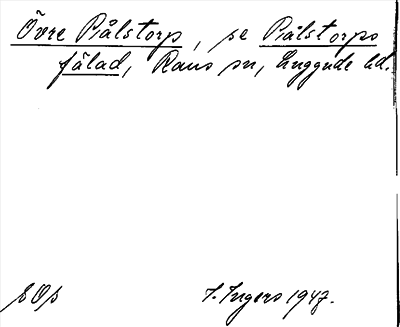 Övre Pålstorp, se Pålstorps
fälad, Raus sn, Luggude hd.
EOp I. Ingers 1947.